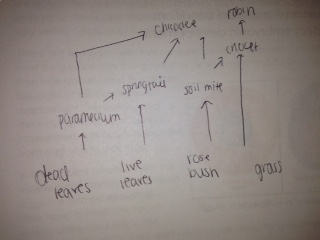 robin
chickadee
cricket
springtails
soil mite
paramecium
dead
leaves
live
leaves
rose
bush
grass